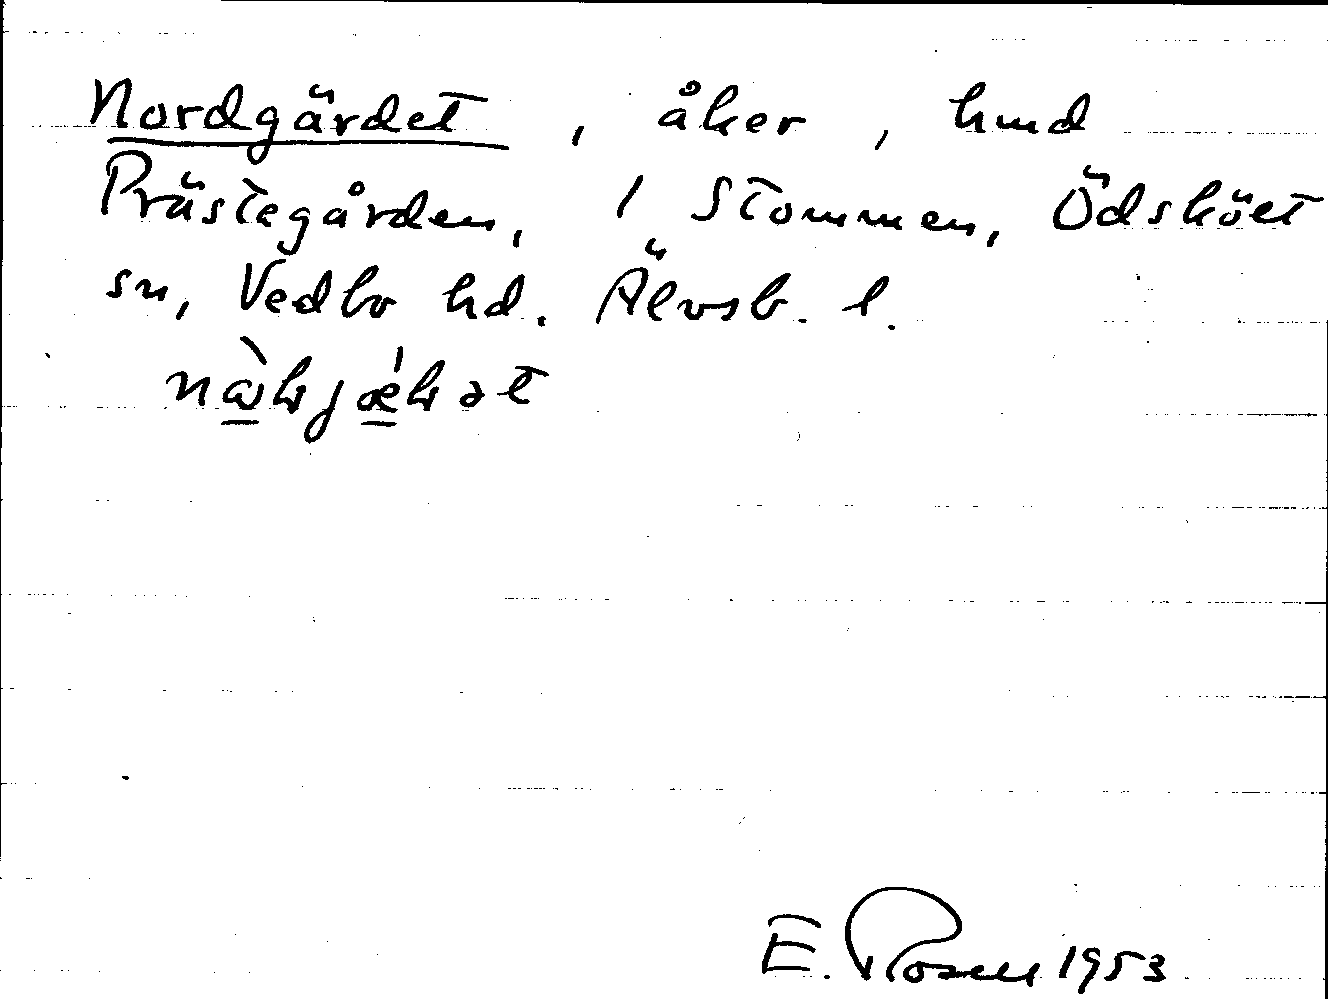 Nordgärdet, åker, hmd
Prästegården, 1 Stommen, Ödsköet
sn, Vedbo hd. Älvsb. l.
E. Rosell 1953